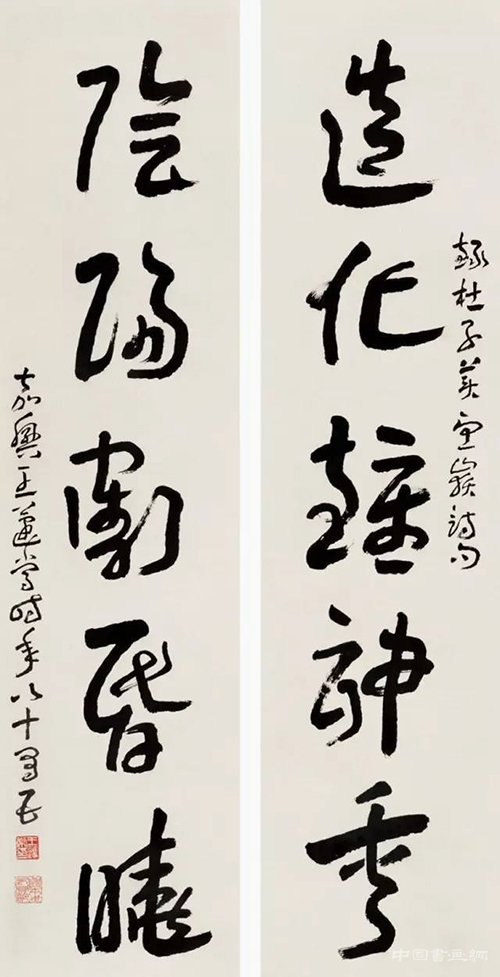 錄杜子美望嶽詩句
造化鍾神秀
陰陽割昏曉
嘉興王蘧常時年八十有五
中国書画網